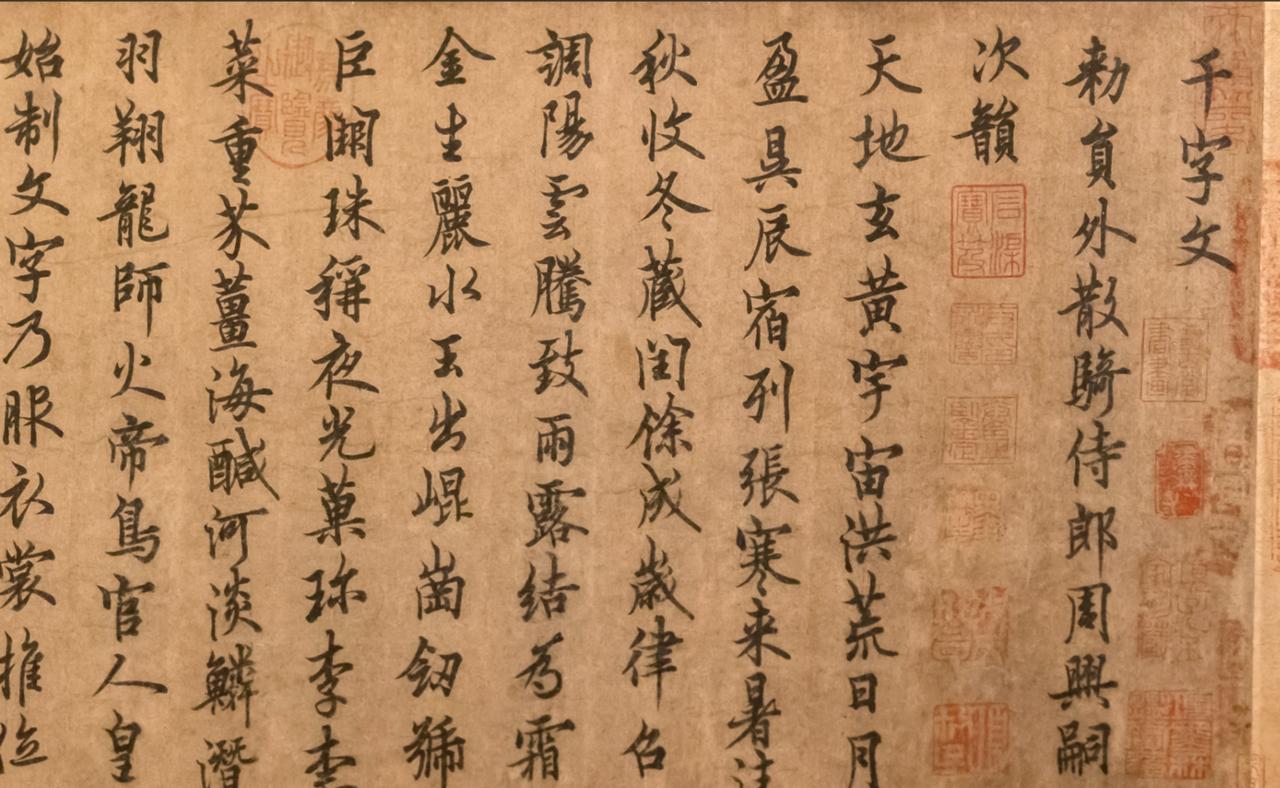 千字文
勑員外散騎侍郎周興嗣
次韻
天地玄黃宇宙洪荒日月
盈昃辰宿列張寒來暑往
秋收冬藏閏餘成歲律召
調陽雲騰致雨露結為霜
金生麗水玉出崐崗劒號
巨闕珠稱夜光菓珎李柰
菜重芥薑海鹹河淡鱗潛
羽翔龍師火帝鳥官人皇
始制文字乃服衣裳推位